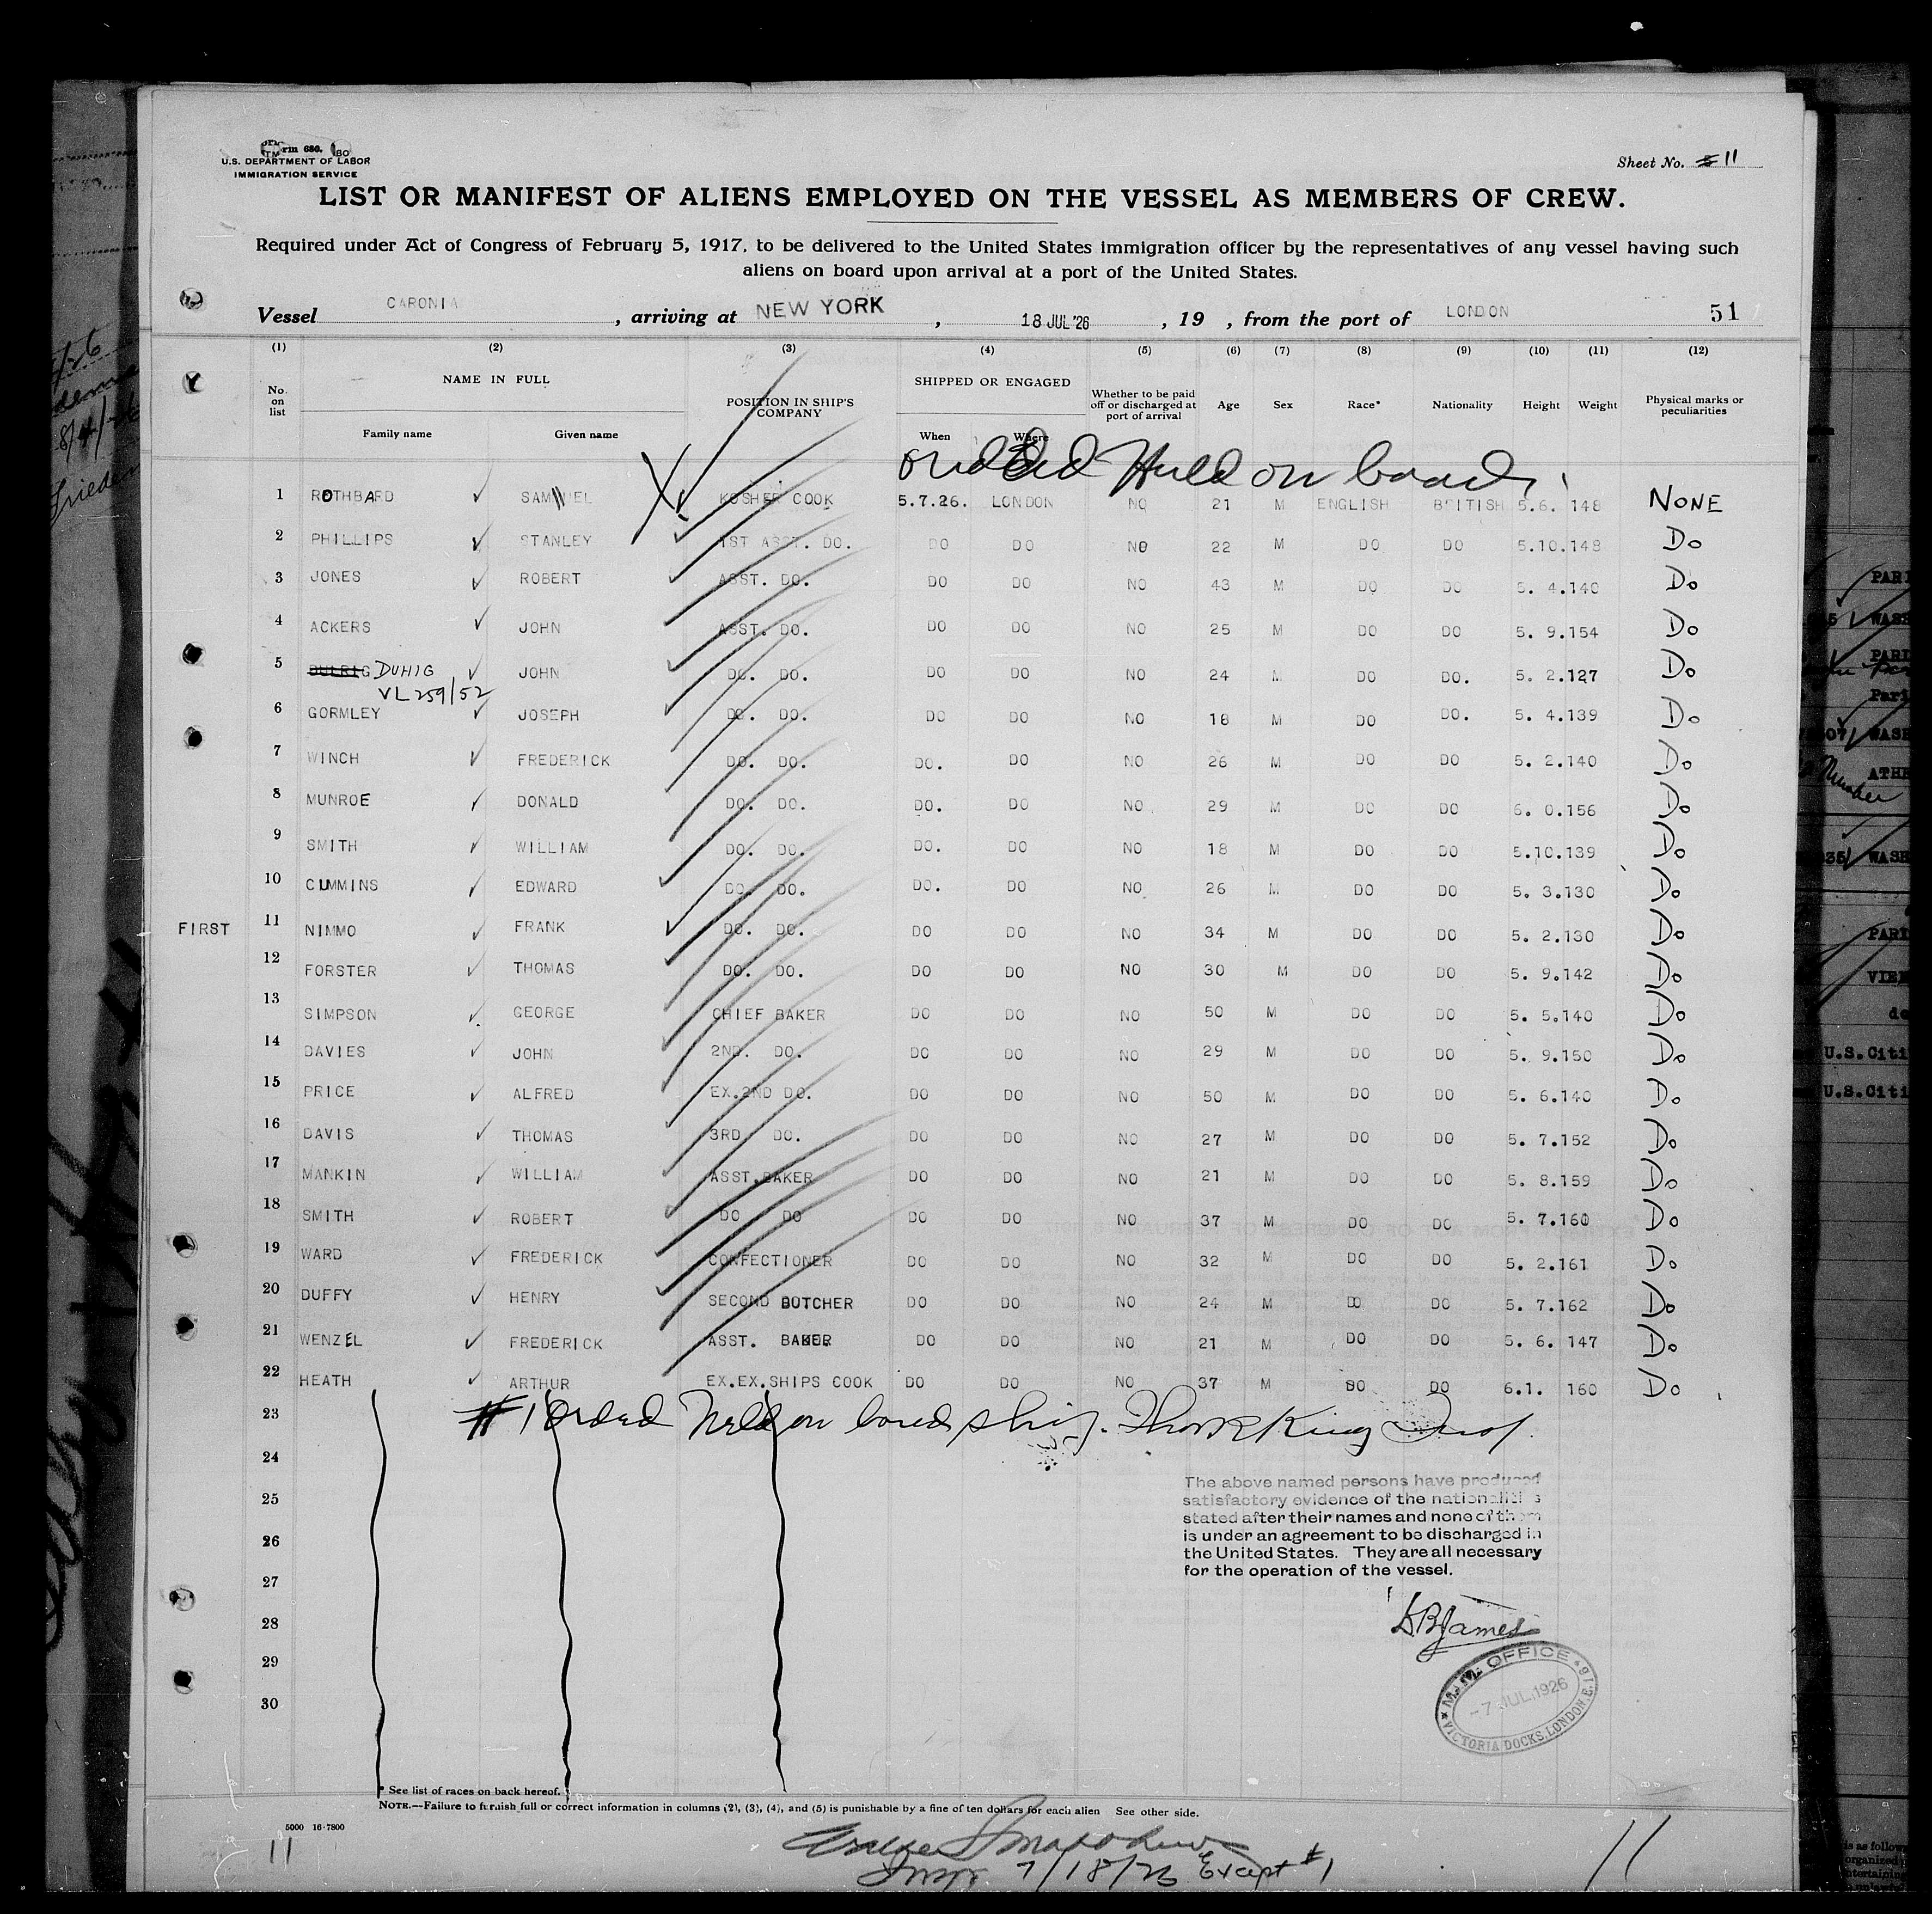 Form 680.
U.S. DEPARTMENT OF LABOR
IMMIGRATION SERVICE
Sheet No. 11
LIST OR MANIFEST OF ALIENS EMPLOYED ON THE VESSEL AS MEMBERS OF CREW.
Required under Act of Congress of February 5, 1917, to be delivered to the United States immigration officer by the representatives of any vessel having such
aliens on board upon arrival at a port of the United States.
Vessel CARONIA, arriving at NEW YORK, 18 JUL '26, 19 , from the port of LONDON 51
(1) (2) (3) (4) (5) (6) (7) (8) (9) (10) (11) (12)
No. on list NAME IN FULL Family name Given name POSITION IN SHIP'S COMPANY SHIPPED OR ENGAGED When Where Whether to be paid off or discharged at port of arrival Age Sex Race* Nationality Height Weight Physical marks or peculiarities
Held on board
1 ROTHBARD SAMUEL KOSHER COOK 5.7.26. LONDON NO 21 M ENGLISH BRITISH 5.6. 148 NONE
2 PHILLIPS STANLEY 1ST ASST. DO. DO DO NO 22 M DO DO 5.10.148 Do
3 JONES ROBERT ASST. DO. DO DO NO 43 M DO DO 5. 4.140 Do
4 ACKERS JOHN ASST. DO. DO DO NO 25 M DO DO 5. 9.154 Do
5 DUHIG JOHN DO. DO. DO DO NO 24 M DO DO. 5. 2.127 Do
VL 259/52
6 GORMLEY JOSEPH DO. DO. DO DO NO 18 M DO DO. 5. 4.139 Do
7 WINCH FREDERICK DO. DO. DO. DO NO 26 M DO DO 5. 2.140 Do
8 MUNROE DONALD DO. DO. DO. DO NO 29 M DO DO 6. 0.156 Do
9 SMITH WILLIAM DO. DO. DO. DO NO 18 M DO DO 5.10.139 Do
10 CUMMINS EDWARD DO. DO. DO. DO NO 26 M DO DO 5. 3.130 Do
FIRST 11 NIMMO FRANK DO. DO. DO DO NO 34 M DO DO 5. 2.130 Do
12 FORSTER THOMAS DO. DO. DO DO NO 30 M DO DO 5. 9.142 Do
13 SIMPSON GEORGE CHIEF BAKER DO DO NO 50 M DO DO 5. 5.140 Do
14 DAVIES JOHN 2ND. DO. DO DO NO 29 M DO DO 5. 9.150 Do
15 PRICE ALFRED EX.2ND DO. DO DO NO 50 M DO DO 5. 6.140 Do
16 DAVIS THOMAS 3RD DO. DO DO NO 27 M DO DO 5. 7.152 Do
17 MANKIN WILLIAM ASST.BAKER DO DO NO 21 M DO DO 5. 8.159 Do
18 SMITH ROBERT DO DO DO DO NO 37 M DO DO 5. 7.160 Do
19 WARD FREDERICK CONFECTIONER DO DO NO 32 M DO DO 5. 2.161 Do
20 DUFFY HENRY SECOND BUTCHER DO DO NO 24 M DO DO 5. 7.162 Do
21 WENZEL FREDERICK ASST. BAKER DO DO NO 21 M DO DO 5. 6. 147 Do
22 HEATH ARTHUR EX.EX.SHIPS COOK DO DO NO 37 M DO DO 6.1. 160 Do
23 #1 Orded Held on board ship. King
24
25
26
27
28
29
30
The above named persons have produced
satisfactory evidence of the nationalities
stated after their names and none of them
is under an agreement to be discharged in
the United States. They are all necessary
for the operation of the vessel.
James
OFFICE
-7 JUL.1926
VICTORIA DOCKS, LONDON, E.16
* See list of races on back hereof.
NOTE.—Failure to furnish full or correct information in columns (2), (3), (4), and (5) is punishable by a fine of ten dollars for each alien See other side.
5000 16-7800
11
Insp. 7/18/26 Except #1
11